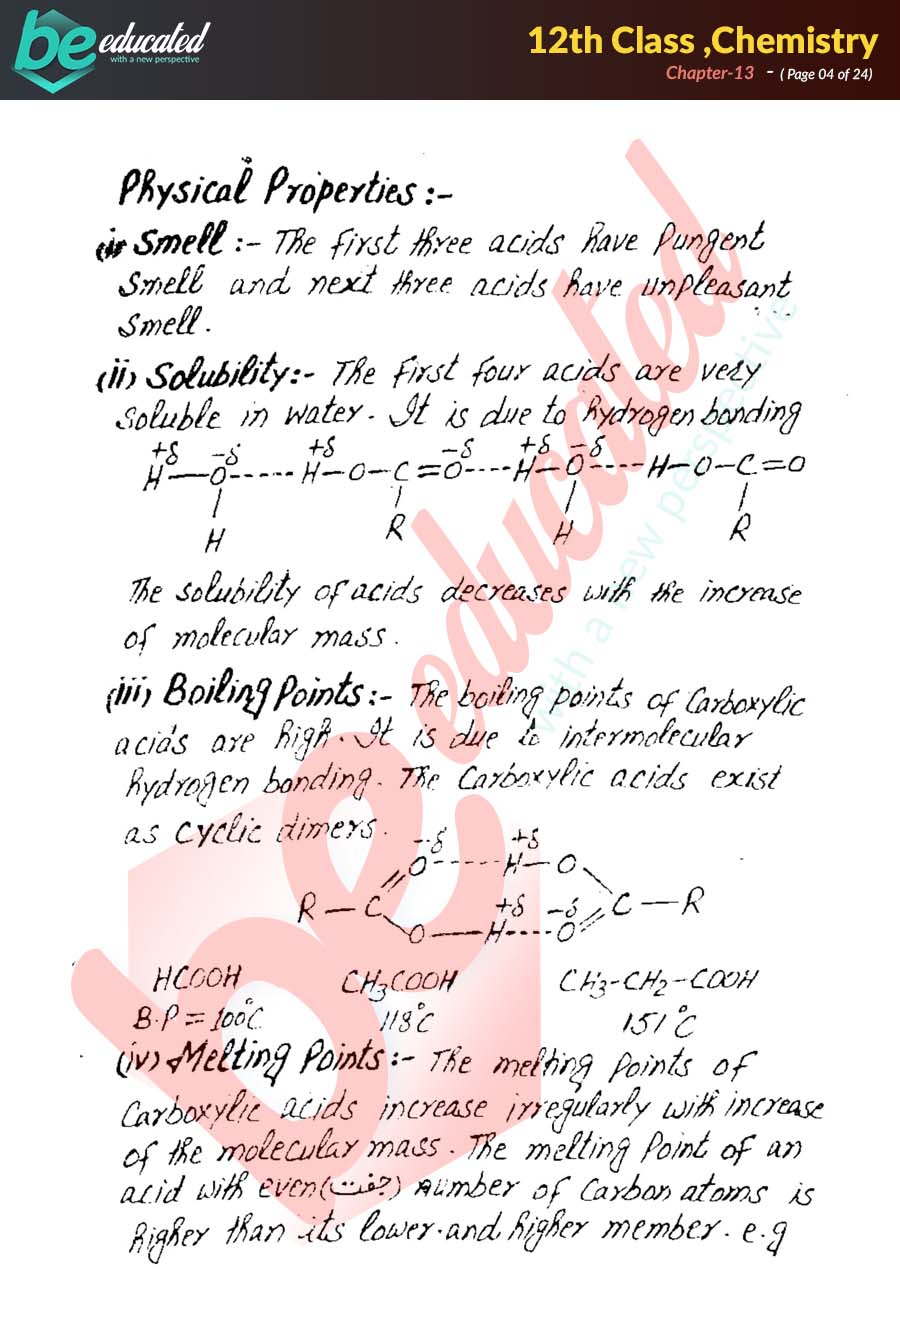 be educated
with a new perspective
12th Class ,Chemistry
Chapter-13 - ( Page 04 of 24)
Physical Properties :-
(i) Smell :- The first three acids have Pungent
Smell and next three acids have unpleasant
Smell.
(ii) Solubility:- The first four acids are very
Soluble in water. It is due to hydrogen bonding
+δ -δ +δ -δ +δ -δ
H—O-----H-O-C=O----H-O----H-O-C=O
H R H R
The solubility of acids decreases with the increase
of molecular mass.
(iii) Boiling Points:- The boiling points of Carboxylic
acids are high. It is due to intermolecular
hydrogen bonding. The Carboxylic acids exist
as cyclic dimers.
-δ +δ
O-----H—O
R—C +δ -δ C—R
O—H----O
HCOOH CH3COOH CH3-CH2-COOH
B.P = 100°C 118°C 151°C
(iv) Melting Points:- The melting Points of
Carboxylic acids increase irregularly with increase
of the molecular mass. The melting Point of an
acid with even (جفت) number of Carbon atoms is
higher than its lower and higher member. e.g
be educated
with a new perspective